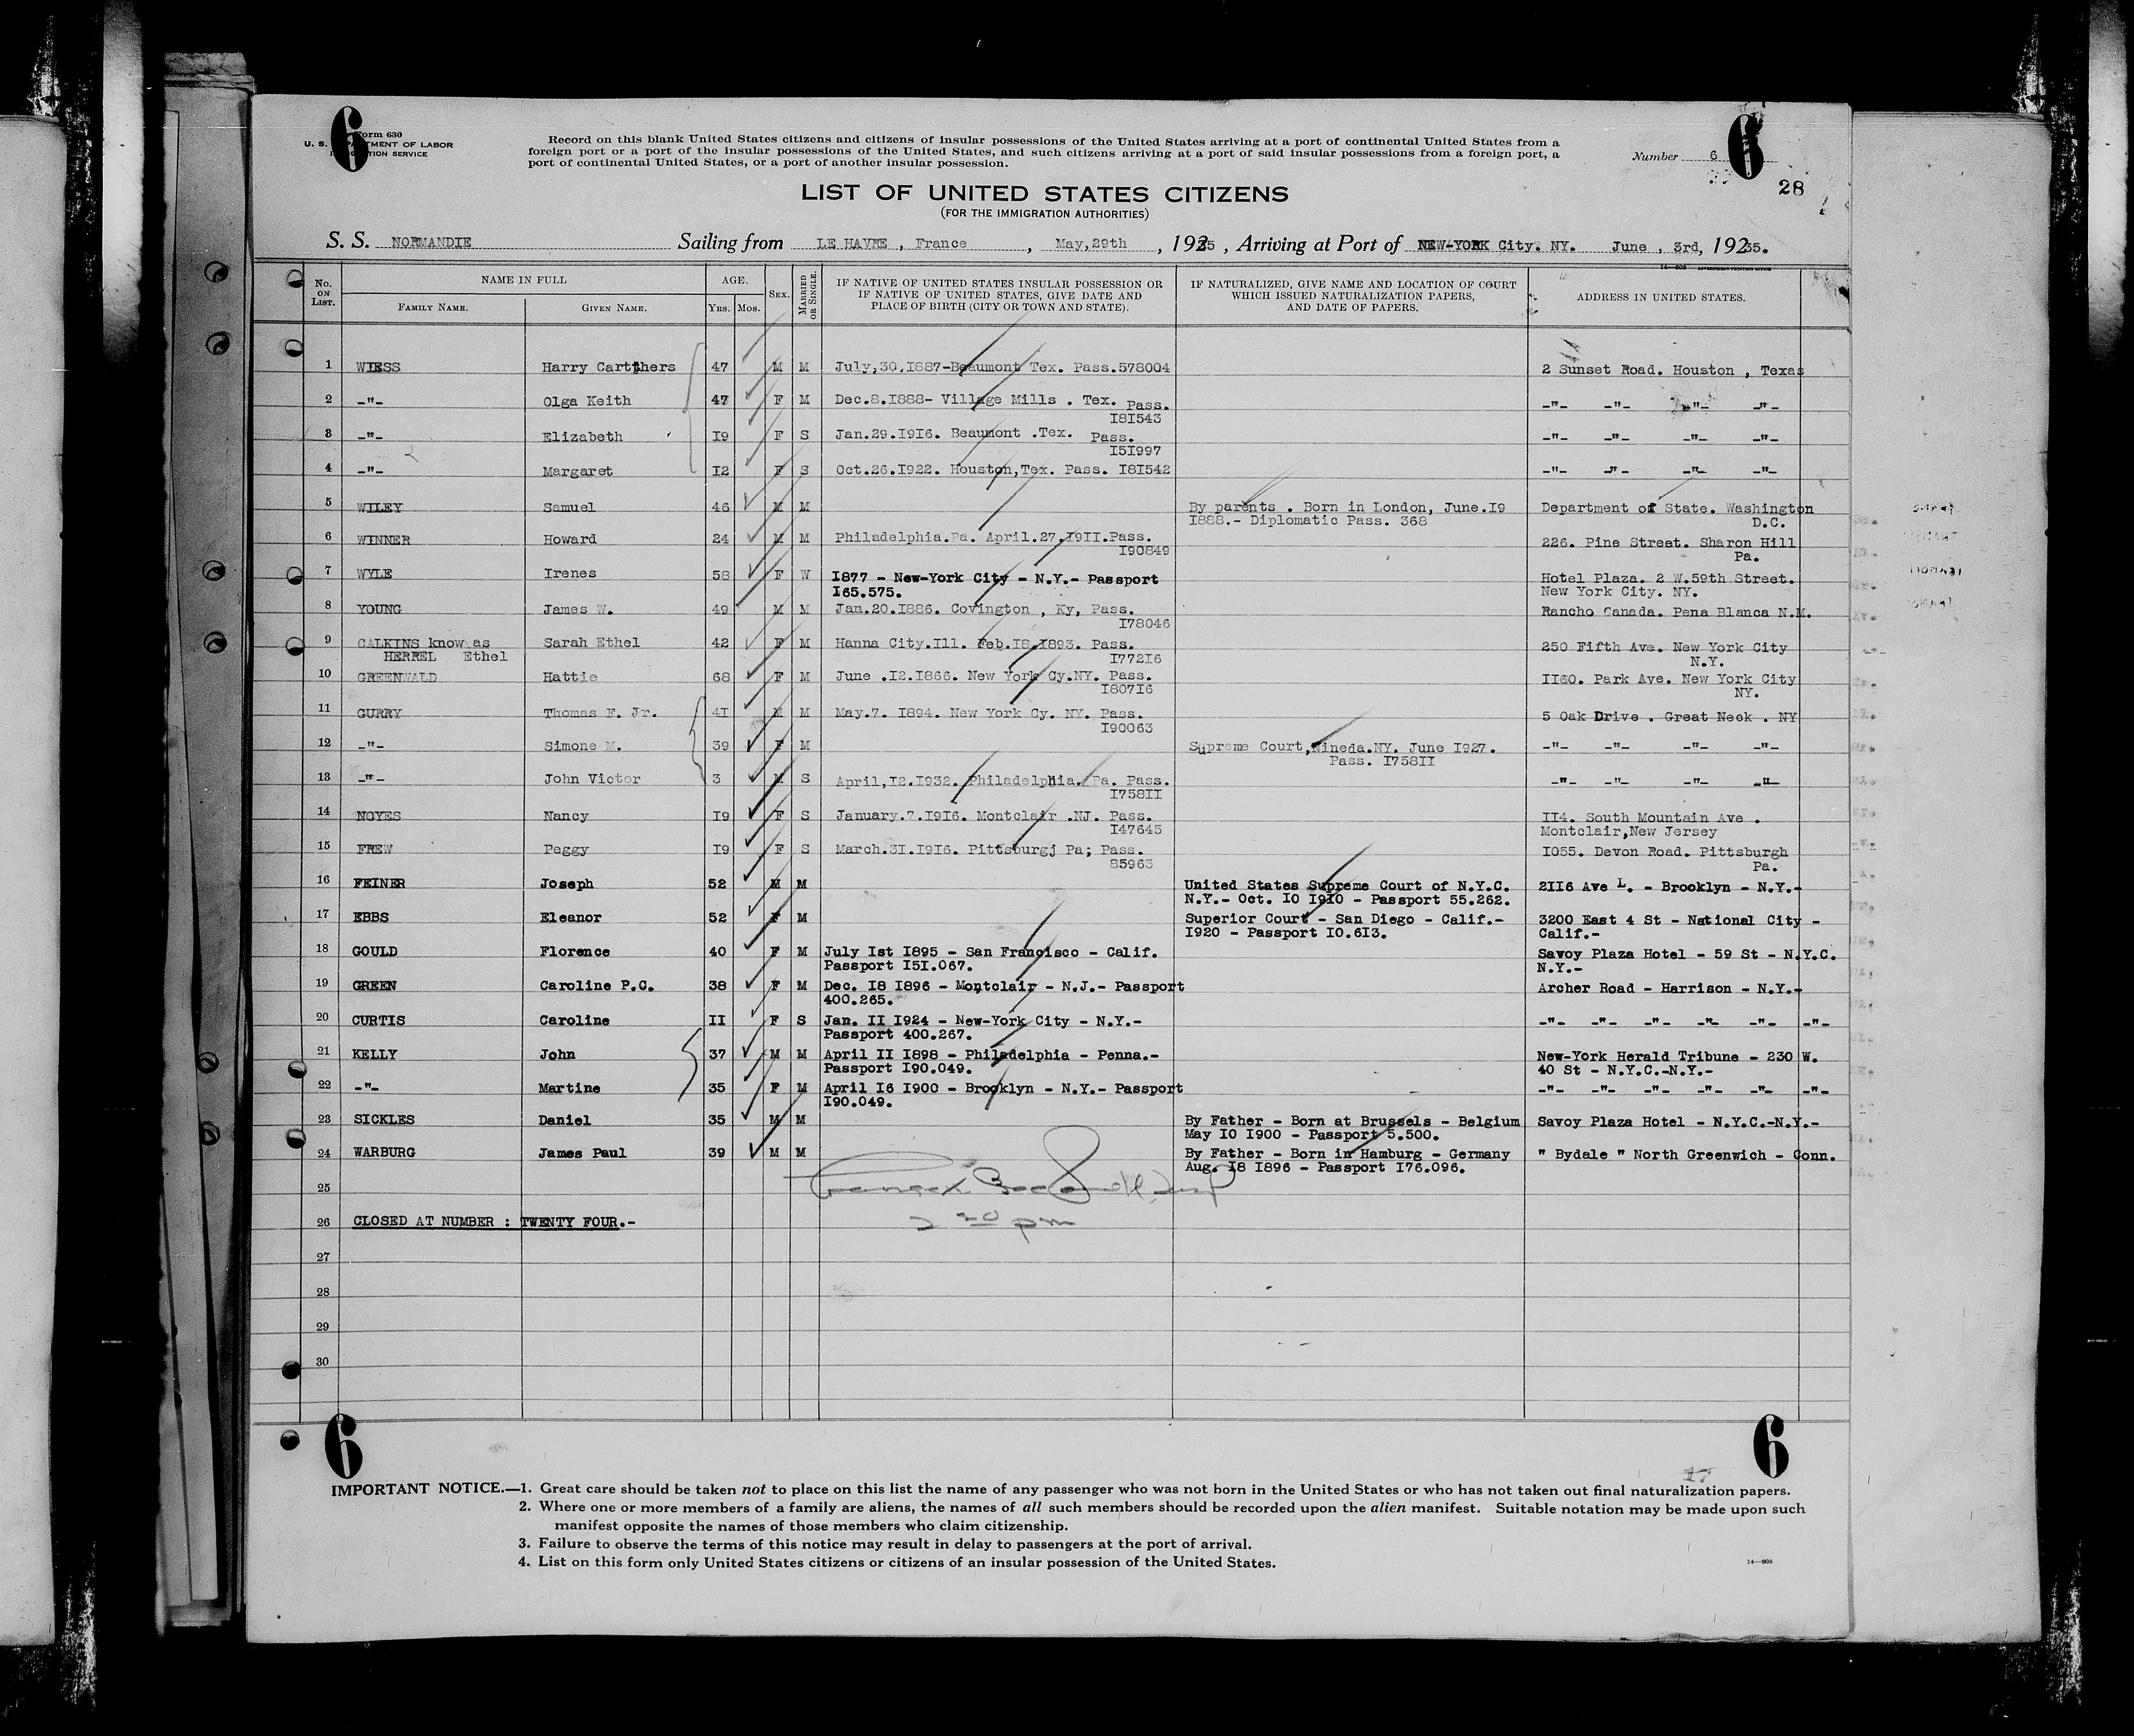 6
6
Form 630
U. S. DEPARTMENT OF LABOR
IMMIGRATION SERVICE
Record on this blank United States citizens and citizens of insular possessions of the United States arriving at a port of continental United States from a
foreign port or a port of the insular possessions of the United States, and such citizens arriving at a port of said insular possessions from a foreign port, a
port of continental United States, or a port of another insular possession.
Number 6
28
LIST OF UNITED STATES CITIZENS
(FOR THE IMMIGRATION AUTHORITIES)
S. S. NORMANDIE Sailing from LE HAVRE , France , May,29th , 1935 , Arriving at Port of NEW-YORK City. NY. June , 3rd, 1935.
No. ON LIST. NAME IN FULL FAMILY NAME. GIVEN NAME. AGE. YRS. MOS. SEX. MARRIED OR SINGLE. IF NATIVE OF UNITED STATES INSULAR POSSESSION OR IF NATIVE OF UNITED STATES, GIVE DATE AND PLACE OF BIRTH (CITY OR TOWN AND STATE). IF NATURALIZED, GIVE NAME AND LOCATION OF COURT WHICH ISSUED NATURALIZATION PAPERS, AND DATE OF PAPERS. ADDRESS IN UNITED STATES.
1 WIESS Harry Cartthers 47 M M July,30.I887-Beaumont Tex. Pass.578004 2 Sunset Road. Houston , Texas
2 -"- Olga Keith 47 F M Dec.8.I888- Village Mills . Tex. Pass. -"- -"- -"- -"-
I8I543
3 -"- Elizabeth I9 F S Jan.29.I9I6. Beaumont .Tex. Pass. -"- -"- -"- -"-
I5I997
4 -"- Margaret I2 F S Oct.26.I922. Houston,Tex. Pass. I8I542 -"- -"- -"- -"-
5 WILEY Samuel 46 M M By parents . Born in London, June.I9 Department of State. Washington
I888.- Diplomatic Pass. 368 D.C.
6 WINNER Howard 24 M M Philadelphia.Pa. April.27.I9II.Pass. 226. Pine Street. Sharon Hill
I90849 Pa.
7 WYLE Irenes 58 F W I877 - New-York City - N.Y.- Passport Hotel Plaza. 2 W.59th Street.
I65.575. New York City. NY.
8 YOUNG James W. 49 M M Jan.20.I886. Covington , Ky, Pass. Rancho Canada. Pena Blanca N.M.
I78046
9 CALKINS know as Sarah Ethel 42 F M Hanna City.Ill. Feb.I8.I893. Pass. 250 Fifth Ave. New York City
HERREL Ethel I772I6 N.Y.
10 GREENWALD Hattie 68 F M June .I2.I866. New York Cy.NY. Pass. II60. Park Ave. New York City
I807I6 NY.
11 GURRY Thomas F. Jr. 4I M M May.7. I894. New York Cy. NY. Pass. 5 Oak Drive . Great Neck . NY
I90063
12 -"- Simone M. 39 F M Supreme Court,Mineda.NY. June I927. -"- -"- -"- -"-
Pass. I758II
13 -"- John Victor 3 M S April,I2.I932. Philadelphia. Pa. Pass. -"- -"- -"- -"-
I758II
14 NOYES Nancy I9 F S January.7.I9I6. Montclair .NJ. Pass. II4. South Mountain Ave .
I47645 Montclair,New Jersey
15 FREW Peggy I9 F S March.3I.I9I6. Pittsburgj Pa; Pass. I055. Devon Road. Pittsburgh
85963 Pa.
16 FEINER Joseph 52 M M United States Supreme Court of N.Y.C. 2II6 Ave L. - Brooklyn - N.Y.-
N.Y.- Oct. IO I9IO - Passport 55.262.
17 EBBS Eleanor 52 F M Superior Court - San Diego - Calif.- 3200 East 4 St - National City -
I920 - Passport IO.6I3. Calif.-
18 GOULD Florence 40 F M July Ist I895 - San Francisco - Calif. Savoy Plaza Hotel - 59 St - N.Y.C.
Passport I5I.067. N.Y.-
19 GREEN Caroline P.C. 38 F M Dec. I8 I896 - Montclair - N.J.- Passport Archer Road - Harrison - N.Y.-
400.265.
20 CURTIS Caroline II F S Jan. II I924 - New-York City - N.Y.- -"- -"- -"- -"- -"- -"-
Passport 400.267.
21 KELLY John 37 M M April II I898 - Philadelphia - Penna.- New-York Herald Tribune - 230 W.
Passport I90.049. 40 St - N.Y.C.-N.Y.-
22 -"- Martine 35 F M April I6 I900 - Brooklyn - N.Y.- Passport -"- -"- -"- -"- -"- -"-
I90.049.
23 SICKLES Daniel 35 M M By Father - Born at Brussels - Belgium Savoy Plaza Hotel - N.Y.C.-N.Y.-
May IO I900 - Passport 5.500.
24 WARBURG James Paul 39 M M By Father - Born in Hamburg - Germany " Bydale " North Greenwich - Conn.
Aug. I8 I896 - Passport I76.096.
25
26 CLOSED AT NUMBER : TWENTY FOUR.-
2 30 pm
27
28
29
30
6
6
17
IMPORTANT NOTICE.—1. Great care should be taken not to place on this list the name of any passenger who was not born in the United States or who has not taken out final naturalization papers.
2. Where one or more members of a family are aliens, the names of all such members should be recorded upon the alien manifest. Suitable notation may be made upon such
manifest opposite the names of those members who claim citizenship.
3. Failure to observe the terms of this notice may result in delay to passengers at the port of arrival.
4. List on this form only United States citizens or citizens of an insular possession of the United States.
14—608